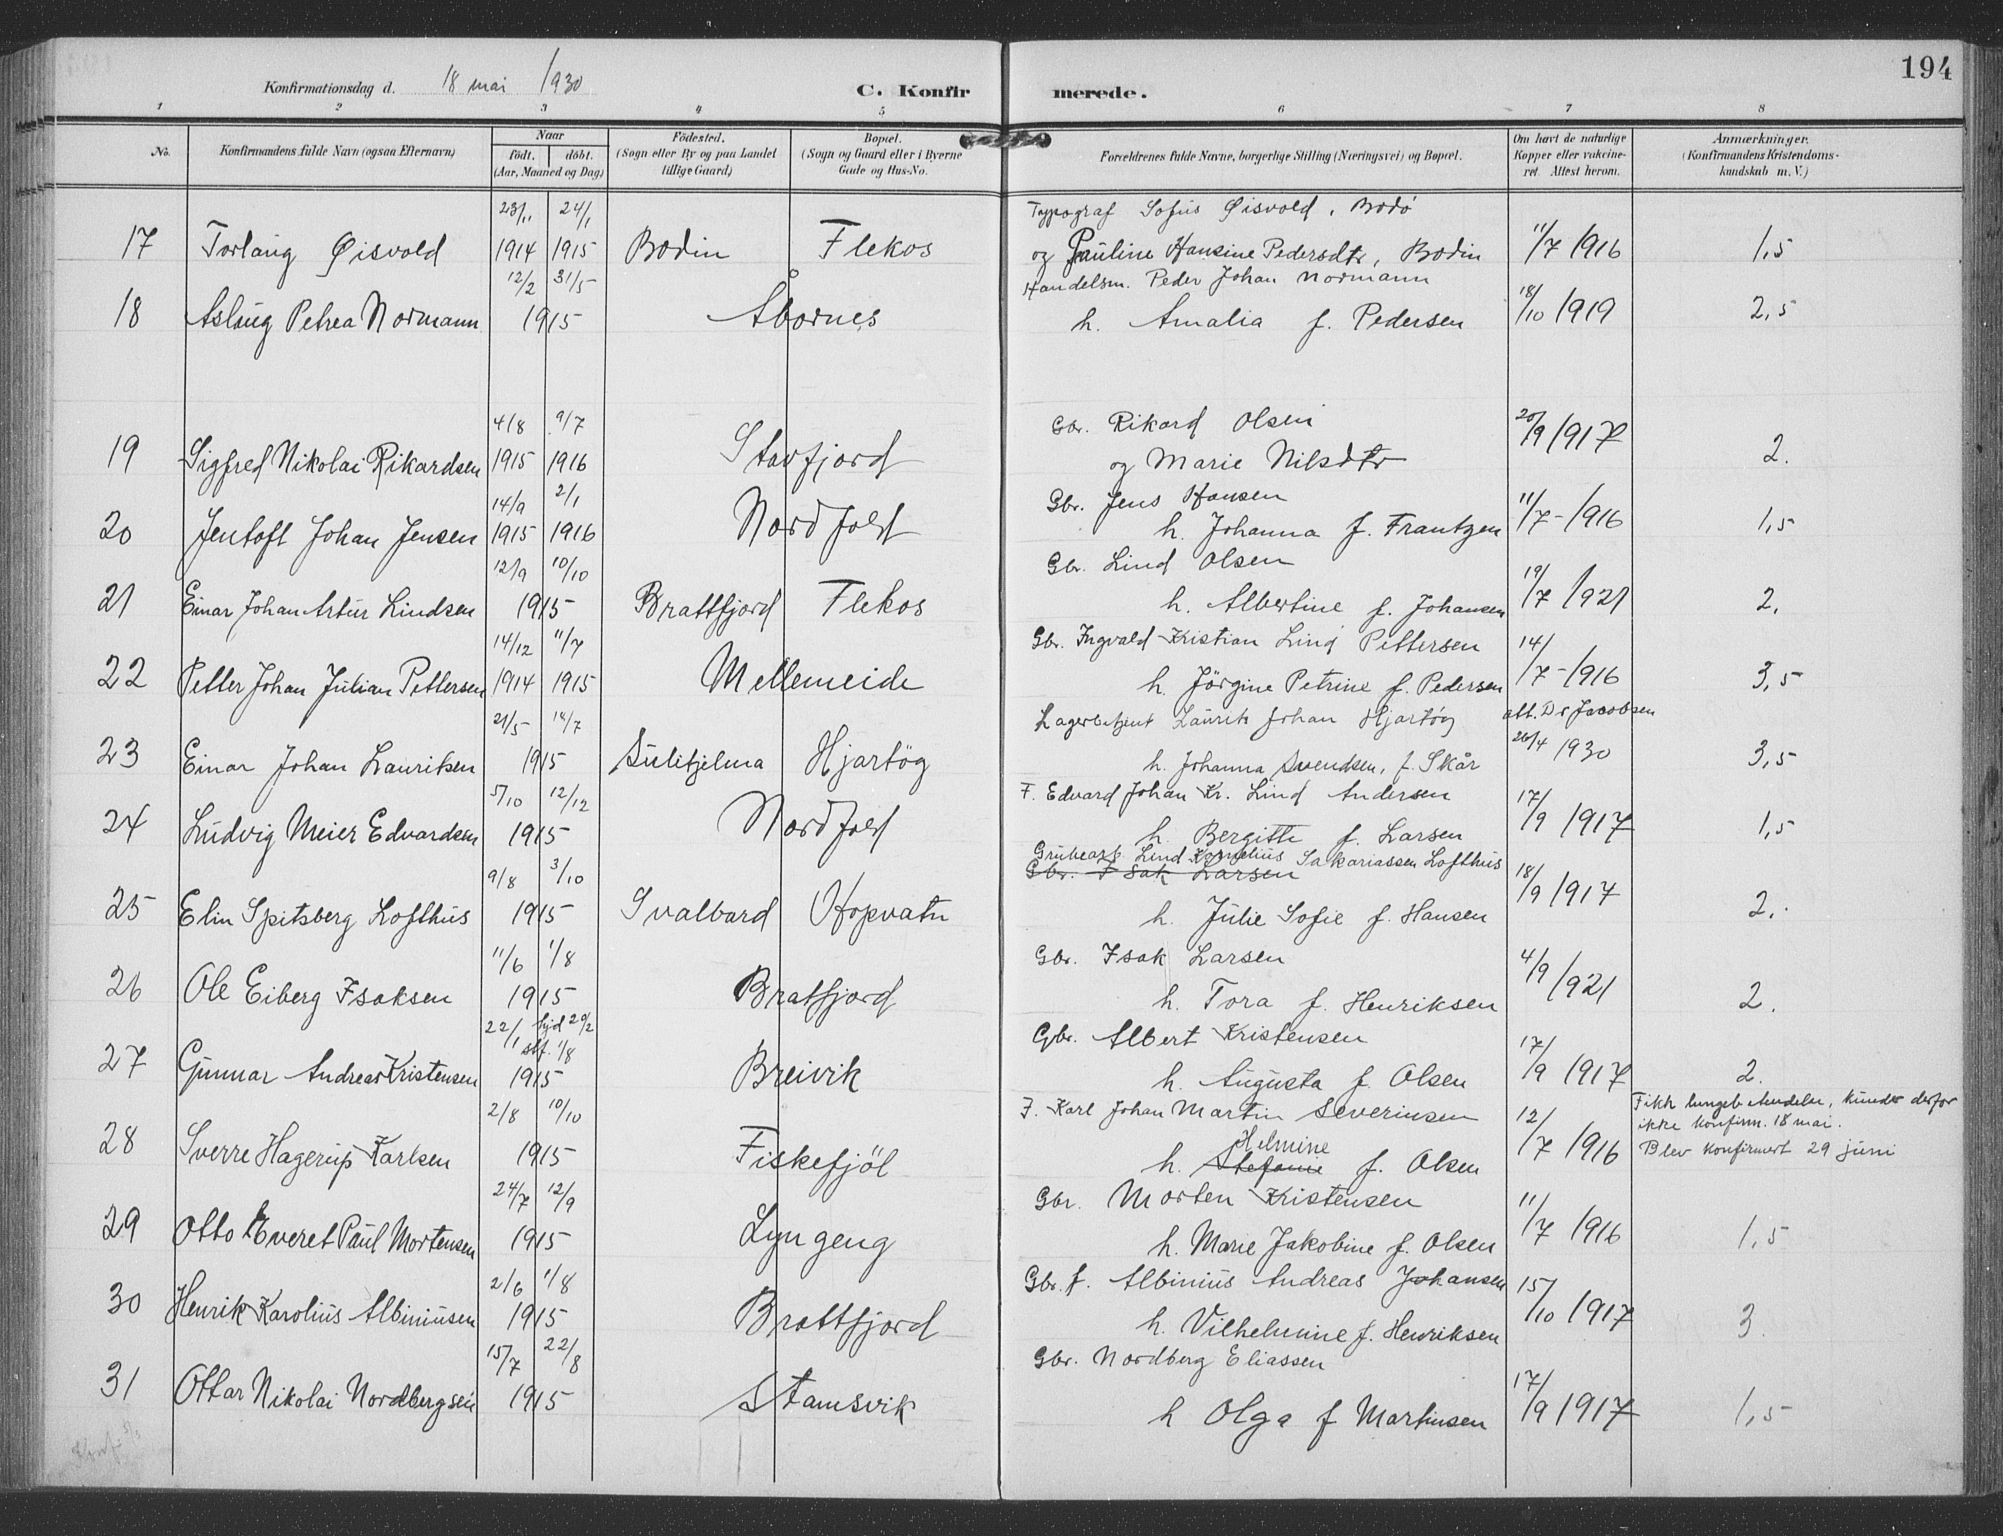 Konfirmationsdag d. 18 mai 1930 C. Konfirmerede. 194
1 2 3 4 5 6 7 8
No. Konfirmandens fulde Navn (ogsaa Efternavn) Naar født. døbt. (Aar, Maaned og Dag) Födested. (Sogn eller By og paa Landet tillige Gaard) Bopæl. (Sogn og Gaard eller i Byerne Gade og Hus-No. Forældrenes fulde Navne, borgerlige Stilling (Næringsvei) og Bopæl. Om havt de naturlige Kopper eller vaccineret. Attest herom. Anmærkninger. (Konfirmandens Kristendomskundskab m. V.)
23/11 24/1 Typograf Sofus Øisvold, Bodø
17 Torlaug Øisvold 1914 1915 Bodin Flekos og Pauline Hansine Pedersdtr, Bodin 11/7 1916 1,5
12/2 31/5 Handelsm. Peder Johan Normann
18 Aslaug Petrea Normann 1915 Åbornes h. Amalia f. Pedersen 18/10 1919 2,5
4/8 9/7 Gbr. Rikard Olsen
19 Sigfred Nikolai Rikardsen 1915 1916 Stavfjord og Marie Nilsdtr 20/9 1917 2.
14/9 2/1 Gbr. Jens Hansen
20 Jentoft Johan Jensen 1915 1916 Nordfold h. Johanna f. Frantzen 11/7-1916 1,5
12/9 10/10 Gbr. Lind Olsen
21 Einar Johan Artur Lindsen 1915 Brattfjord Flekos h. Albertine f. Johansen 19/7 1921 2.
14/12 11/7 Gbr. Ingvald Kristian Lind Pettersen
22 Petter Johan Julian Pettersen 1914 1915 Mellemeide h. Jörgine Petrine f. Pedersen 14/7-1916 3,5
21/5 14/7 Lagerbetjent Laurits Johan Hjartöy att. Dr Jacobsen
23 Einar Johan Lauritsen 1915 Sulitjelma Hjartöy h. Johanna Svendsen, f. Skår 26/4 1930 3,5
5/10 12/12 F. Edvard Johan Kr. Lind Andersen
24 Ludvig Meier Edvardsen 1915 Nordfold h. Bergitte f. Larsen 17/9 1917 1,5
9/8 3/10 Grubearb. Lind Kornelius Sakariassen Lofthus
Gbr. Isak Larsen
25 Elin Spitsberg Lofthus 1915 Svalbard Hopvatn h. Julie Sofie f. Hansen 18/9 1917 2.
11/6 1/8 Gbr. Isak Larsen
26 Ole Eiberg Isaksen 1915 Bratfjord h. Tora f. Henriksen 4/9 1921 2.
22/1 hjd 20/2 stf. 1/8 Gbr. Albert Kristensen
27 Gunnar Andreas Kristensen 1915 Breivik h. Augusta f. Olsen 17/9 1917 2.
2/8 10/10 F. Karl Johan Martin Severinsen
28 Sverre Hagerup Karlsen 1915 Fiskefjöl h. Stefanie Helmine f. Olsen 12/7 1916 Fikk lungebetendelse, kunde derfor
ikke konfirm. 18 mai.
Blev konfirmert 29 juni
24/7 12/9 Gbr. Morten Kristensen
29 Otto Everet Paul Mortensen 1915 Lyngeng h. Marie Jakobine f. Olsen 11/7 1916 1,5
2/6 1/8 Gbr. f. Albinius Andreas Johansen
30 Henrik Karolius Albiniusen 1915 Brattfjord h. Vilhelmine f. Henriksen 15/10 1917 3.
15/7 22/8 Gbr. Nordberg Eliassen
31 Ottar Nikolai Nordbergsen 1915 Stamsvik h Olga f Martinsen 17/9 1917 1,5